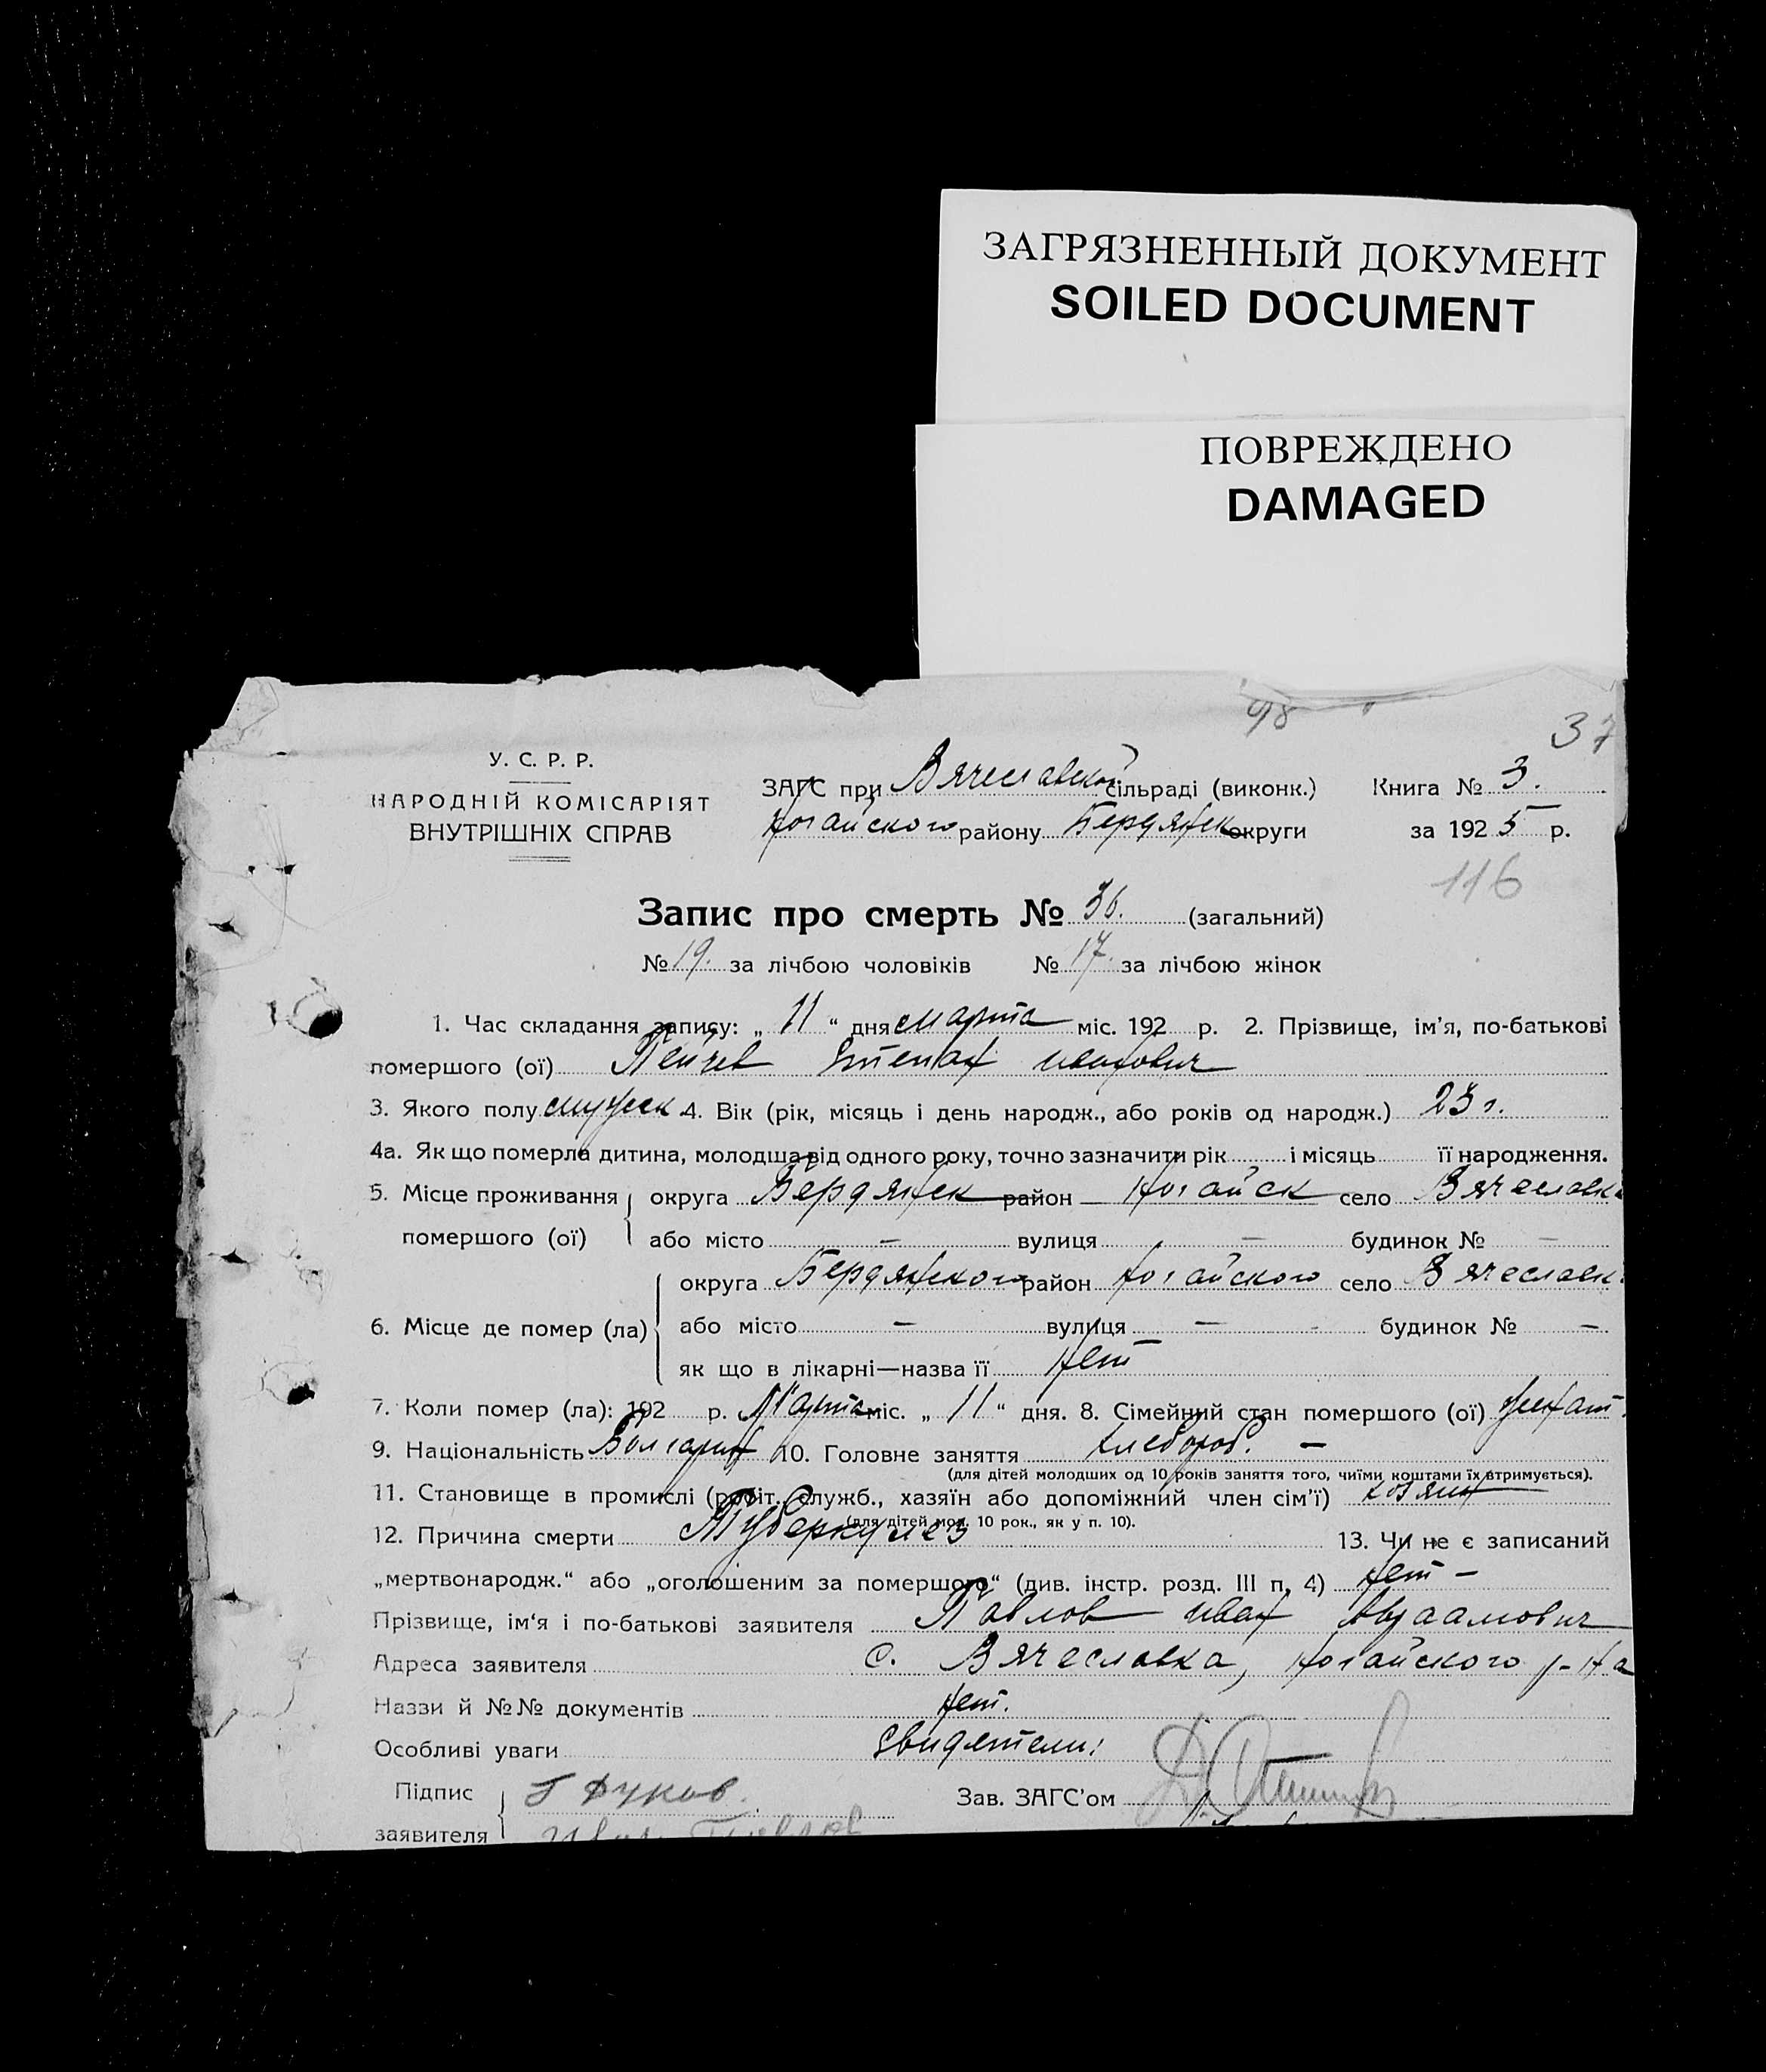 ЗАГРЯЗНЕННЫЙ ДОКУМЕНТ
SOILED DOCUMENT
ПОВРЕЖДЕНО
DAMAGED
98
37
У. С. Р. Р.
НАРОДНІЙ КОМІСАРІЯТ
ВНУТРІШНІХ СПРАВ
ЗАГС при Вячеславской сільраді (виконк.) Книга № 3.
Ногайского району Бердянск округи за 1925 р.
116
Запис про смерть № 36. (загальний)
№ 19. за лічбою чоловіків № 17. за лічбою жінок
1. Час складання запису: „ 11 “ дня марта міс. 192 р. 2. Прізвище, ім’я, по-батькові
помершого (ої) Пейчев Степан Иванович
3. Якого полу мужск. 4. Вік (рік, місяць і день народж., або років од народж.) 23 г.
4а. Як що померла дитина, молодша від одного року, точно зазначити рік і місяць її народження.
5. Місце проживання помершого (ої) округа Бердянск район Ногайск село Вячеславка
або місто — вулиця — будинок № —
6. Місце де помер (ла) округа Бердянского район Ногайского село Вячеславка
або місто — вулиця — будинок № —
як що в лікарні—назва її нет
7. Коли помер (ла): 192 р. Марта міс. „ 11 “ дня. 8. Сімейний стан помершого (ої) женат.
9. Національність Болгарин 10. Головне заняття хлебороб. —
(для дітей молодших од 10 років заняття того, чиїми коштами їх втримується).
11. Становище в промислі (робіт., служб., хазяїн або допоміжний член сім’ї) хозяин
(для дітей мол. 10 рок., як у п. 10).
12. Причина смерти Туберкулез 13. Чи не є записаний
„мертвонародж.“ або „оголошеним за помершого“ (див. інстр. розд. III п. 4) нет —
Прізвище, ім‘я і по-батькові заявителя Павлов Иван Авраамович
Адреса заявителя с. Вячеславка, Ногайского р-на
Назви й №№ документів нет.
Особливі уваги Свидетели:
Підпис заявителя Зав. ЗАГС’ом